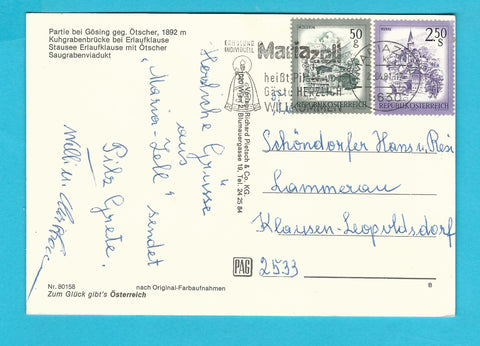 Partie bei Gösing geg. Ötscher, 1892 m
Kuhgrabenbrücke bei Erlaufklause
Stausee Erlaufklause mit Ötscher
Saugrabenviadukt
ERHOLUNG
INDIVIDUELL
Mariazell
heißt Pilger und
Gäste HERZLICH
WILLKOMMEN
50
g
REPUBLIK ÖSTERREICH
2.50
S
REPUBLIK ÖSTERREICH
8630
Herzliche Grüsse
aus
"Maria-Zell" sendet
Pilz Grete.
Willi u.
Verlag Richard Pietsch & Co. KG.
Wien 2, Blumauergasse 19, Tel. 24 25 84
Schöndorfer Hans u. Resi
Lammerau
Klausen-Leopoldsdorf
2533
PAG
8
Nr. 80158
nach Original-Farbaufnahmen
Zum Glück gibt's Österreich